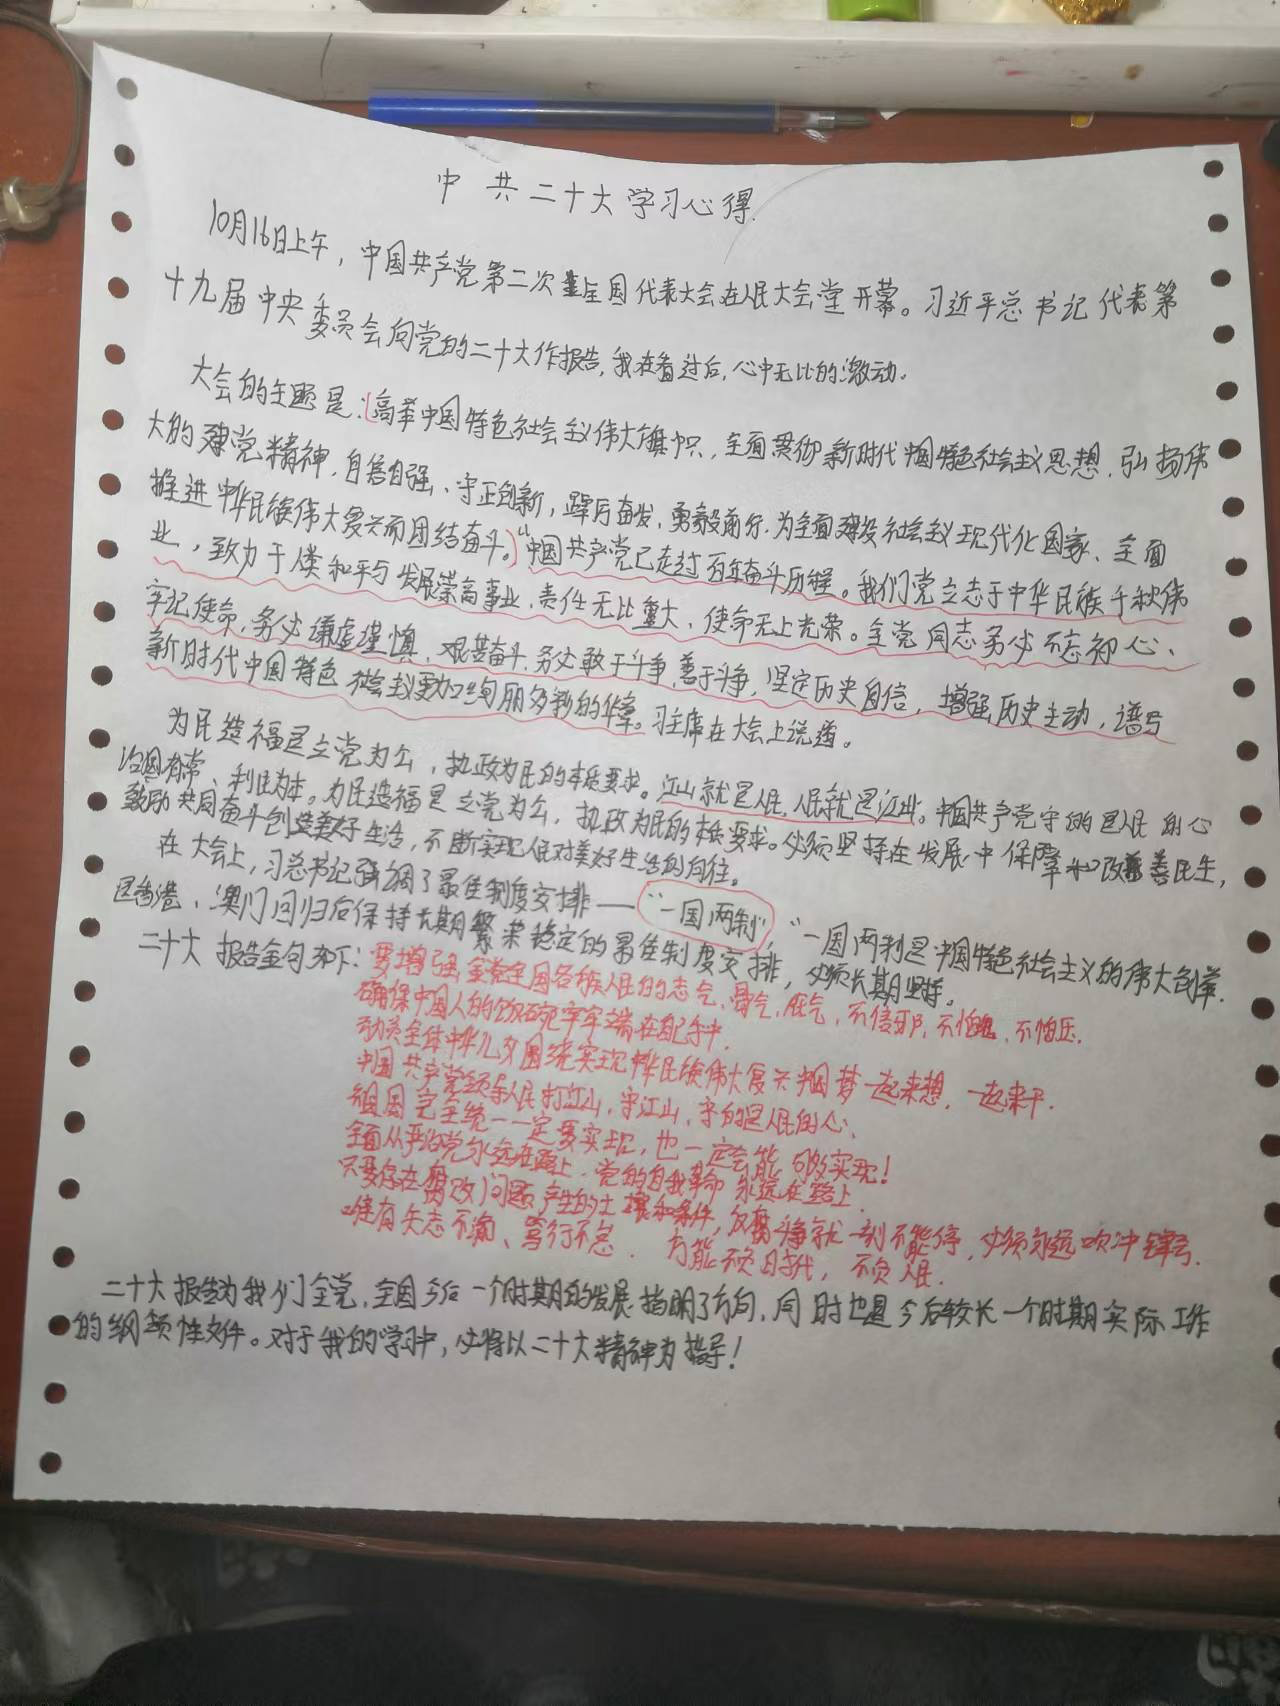 中共二十大学习心得.
10月16日上午，中国共产党第二次全国代表大会在人民大会堂开幕。习近平总书记代表第
十九届中央委员会向党的二十大作报告，我在看过后，心中无比的激动.
大会的主题是：高举中国特色社会主义伟大旗帜，全面贯彻新时代中国特色社会主义思想，弘扬伟
大的建党精神，自信自强、守正创新，踔厉奋发，勇毅前行.为全面建设社会主义现代化国家、全面
推进中华民族伟大复兴而团结奋斗。中国共产党已走过百年奋斗历程。我们党立志于中华民族千秋伟
业，致力于人类和平与发展崇高事业，责任无比重大，使命无上光荣。全党同志务必不忘初心、
牢记使命，务必谦虚谨慎、艰苦奋斗，务必敢于斗争，善于斗争，坚定历史自信，增强历史主动，谱写
新时代中国特色社会主义更加绚丽多彩的华章。习主席在大会上说道。
为民造福是立党为公，执政为民的本质要求。江山就是人民，人民就是江山。中国共产党守的是人民的心
治国有常、利民为本。为民造福是立党为公，执政为民的本质要求。必须坚持在发展中保障和改善民生，
鼓励共同奋斗创造美好生活，不断实现人民对美好生活的向往。
在大会上，习总书记强调了最佳制度安排——“一国两制”，“一国两制是中国特色社会主义的伟大创举.
是香港、澳门回归后保持长期繁荣稳定的最佳制度安排，必须长期坚持。
二十大报告金句如下：要增强全党全国各族人民的志气，骨气，底气，不信邪，不怕鬼，不怕压.
确保中国人的饭碗牢牢端在自己手中.
动员全体中华儿女围绕实现中华民族伟大复兴中国梦一起来想，一起来干.
中国共产党领导人民打江山，守江山，守的是人民的心.
祖国完全统一一定要实现，也一定会能够实现！
全面从严治党永远在路上，党的自我革命永远在路上.
只要存在腐败问题产生的土壤和条件，反腐斗争就一刻不能停，必须永远吹冲锋号.
唯有矢志不渝、笃行不怠，方能不负时代，不负人民.
二十大报告为我们全党，全国今后一个时期的发展指明了方向，同时也是今后较长一个时期实际工作
的纲领性文件。对于我的学习中，必将以二十大精神为指导！